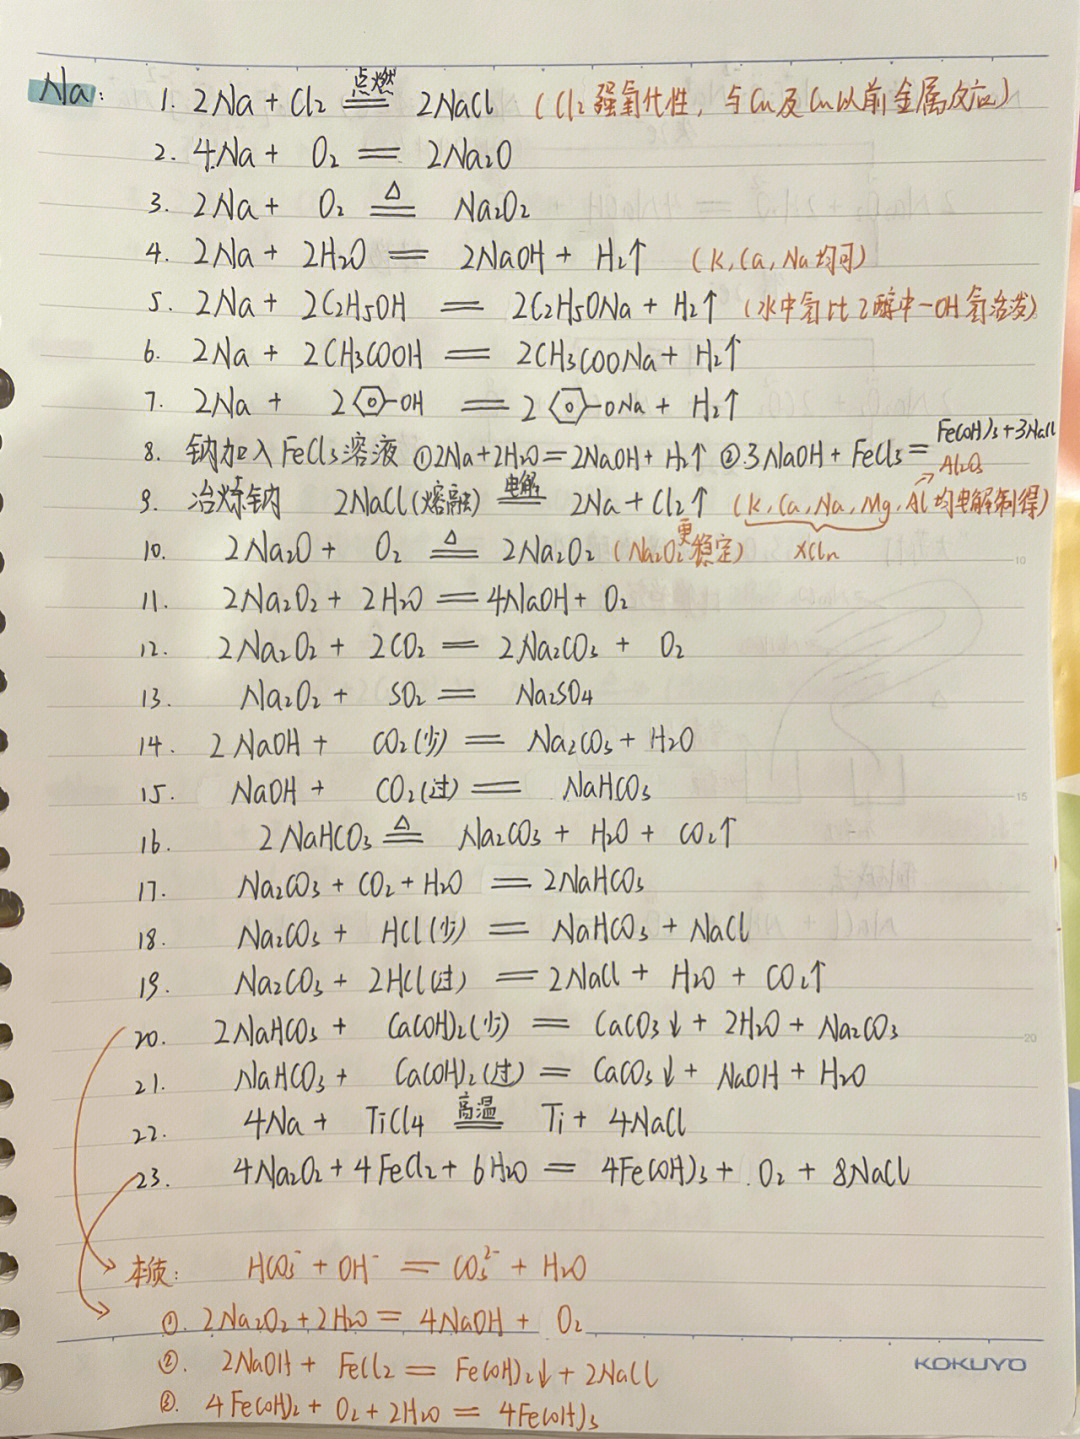 Na:
1. 2Na + Cl₂ 点燃══ 2NaCl (Cl₂强氧化性, 与Cu及Cu以前金属反应)
2. 4Na + O₂ ══ 2Na₂O
3. 2Na + O₂ △══ Na₂O₂
4. 2Na + 2H₂O ══ 2NaOH + H₂↑ (K, Ca, Na均可)
5. 2Na + 2C₂H₅OH ══ 2C₂H₅ONa + H₂↑ (水中氢比乙醇中-OH氢活泼)
6. 2Na + 2CH₃COOH ══ 2CH₃COONa + H₂↑
7. 2Na + 2⌬-OH ══ 2⌬-ONa + H₂↑
8. 钠加入FeCl₃溶液 ①2Na+2H₂O=2NaOH+H₂↑ ②.3NaOH+FeCl₃= Fe(OH)₃+3NaCl
Al₂O₃
9. 冶炼钠 2NaCl(熔融) 电解══ 2Na + Cl₂↑ (K, Ca, Na, Mg, Al 均电解制得)
10. 2Na₂O + O₂ △══ 2Na₂O₂ (Na₂O₂更稳定) XCln
11. 2Na₂O₂ + 2H₂O ══ 4NaOH + O₂
12. 2Na₂O₂ + 2CO₂ ══ 2Na₂CO₃ + O₂
13. Na₂O₂ + SO₂ ══ Na₂SO₄
14. 2NaOH + CO₂(少) ══ Na₂CO₃ + H₂O
15. NaOH + CO₂(过) ══ NaHCO₃
16. 2NaHCO₃ △══ Na₂CO₃ + H₂O + CO₂↑
17. Na₂CO₃ + CO₂ + H₂O ══ 2NaHCO₃
18. Na₂CO₃ + HCl(少) ══ NaHCO₃ + NaCl
19. Na₂CO₃ + 2HCl(过) ══ 2NaCl + H₂O + CO₂↑
20. 2NaHCO₃ + Ca(OH)₂(少) ══ CaCO₃↓ + 2H₂O + Na₂CO₃
21. NaHCO₃ + Ca(OH)₂(过) ══ CaCO₃↓ + NaOH + H₂O
22. 4Na + TiCl₄ 高温══ Ti + 4NaCl
23. 4Na₂O₂ + 4FeCl₂ + 6H₂O ══ 4Fe(OH)₃ + O₂ + 8NaCl
本质: HCO₃⁻ + OH⁻ ══ CO₃²⁻ + H₂O
①. 2Na₂O₂+2H₂O ══ 4NaOH + O₂
②. 2NaOH + FeCl₂ ══ Fe(OH)₂↓ + 2NaCl
KOKUYO
③. 4Fe(OH)₂ + O₂ + 2H₂O ══ 4Fe(OH)₃